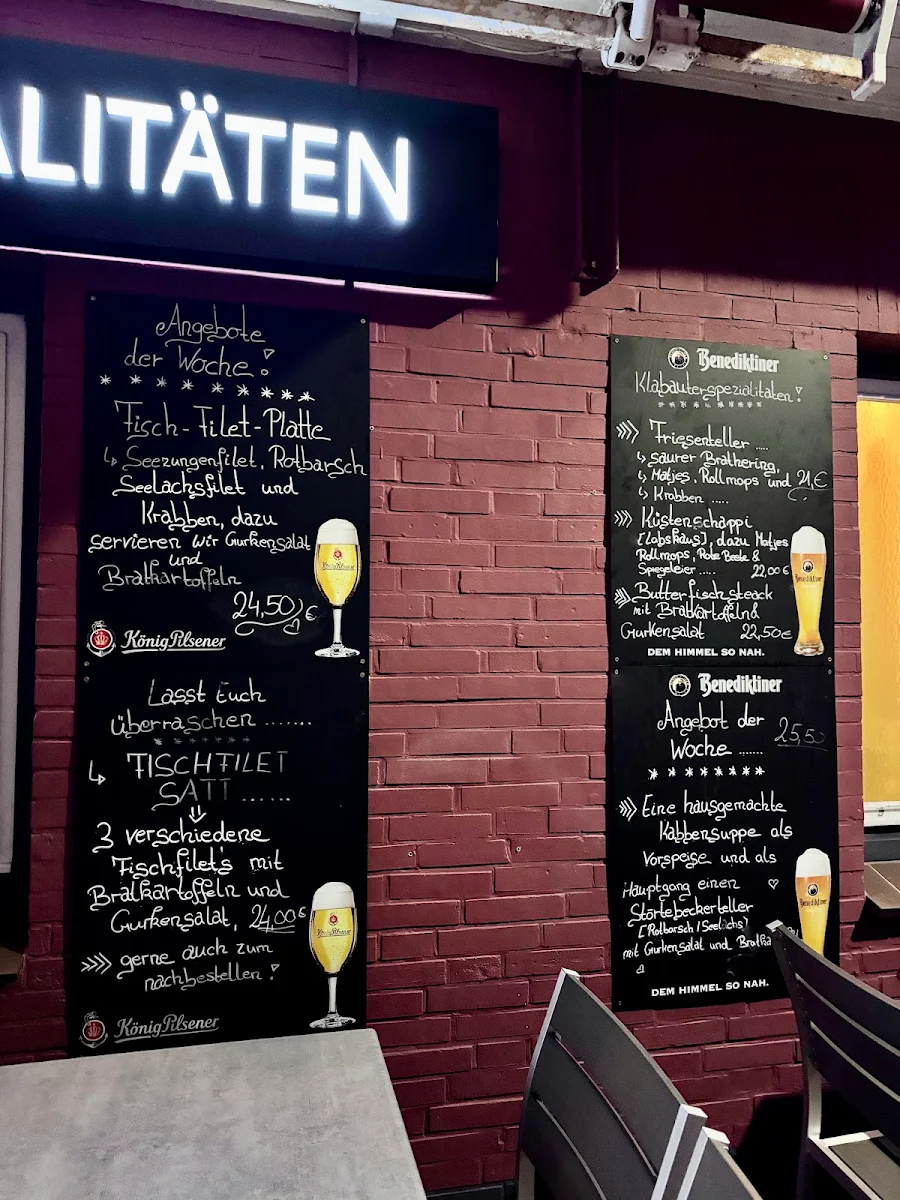 ALITÄTEN
Angebote
der Woche !
Fisch-Filet-Platte
Seezungenfilet, Rotbarsch
Seelachsfilet und
Krabben, dazu
servieren wir Gurkensalat
und
Bratkartoffeln
24,50 €
König Pilsener
König Pilsener
Lasst Euch
überraschen .......
FISCHFILET
SATT ......
3 verschiedene
Fischfilet's mit
Bratkartoffeln und
Gurkensalat, 24,00€
gerne auch zum
nachbestellen !
König Pilsener
König Pilsener
Benediktiner
Klabauterspezialitäten !
Friesenteller .....
saurer Brathering,
Matjes, Rollmops und 21,€
Krabben .....
Küstenschappi
[Labskaus], dazu Matjes
Rollmops, Rote Beete &
Spiegeleier ..... 22,00 €
Benediktiner
Butterfischsteack
mit Bratkartoffeln &
Gurkensalat 22,50€
DEM HIMMEL SO NAH.
Benediktiner
Angebot der
Woche ...... 25,50
Eine hausgemachte
Kabbensuppe als
Vorspeise und als
Hauptgang einen
Störtebeckerteller
[Rotbarsch / Seelachs]
mit Gurkensalat und Bratka
Benediktiner
DEM HIMMEL SO NAH.